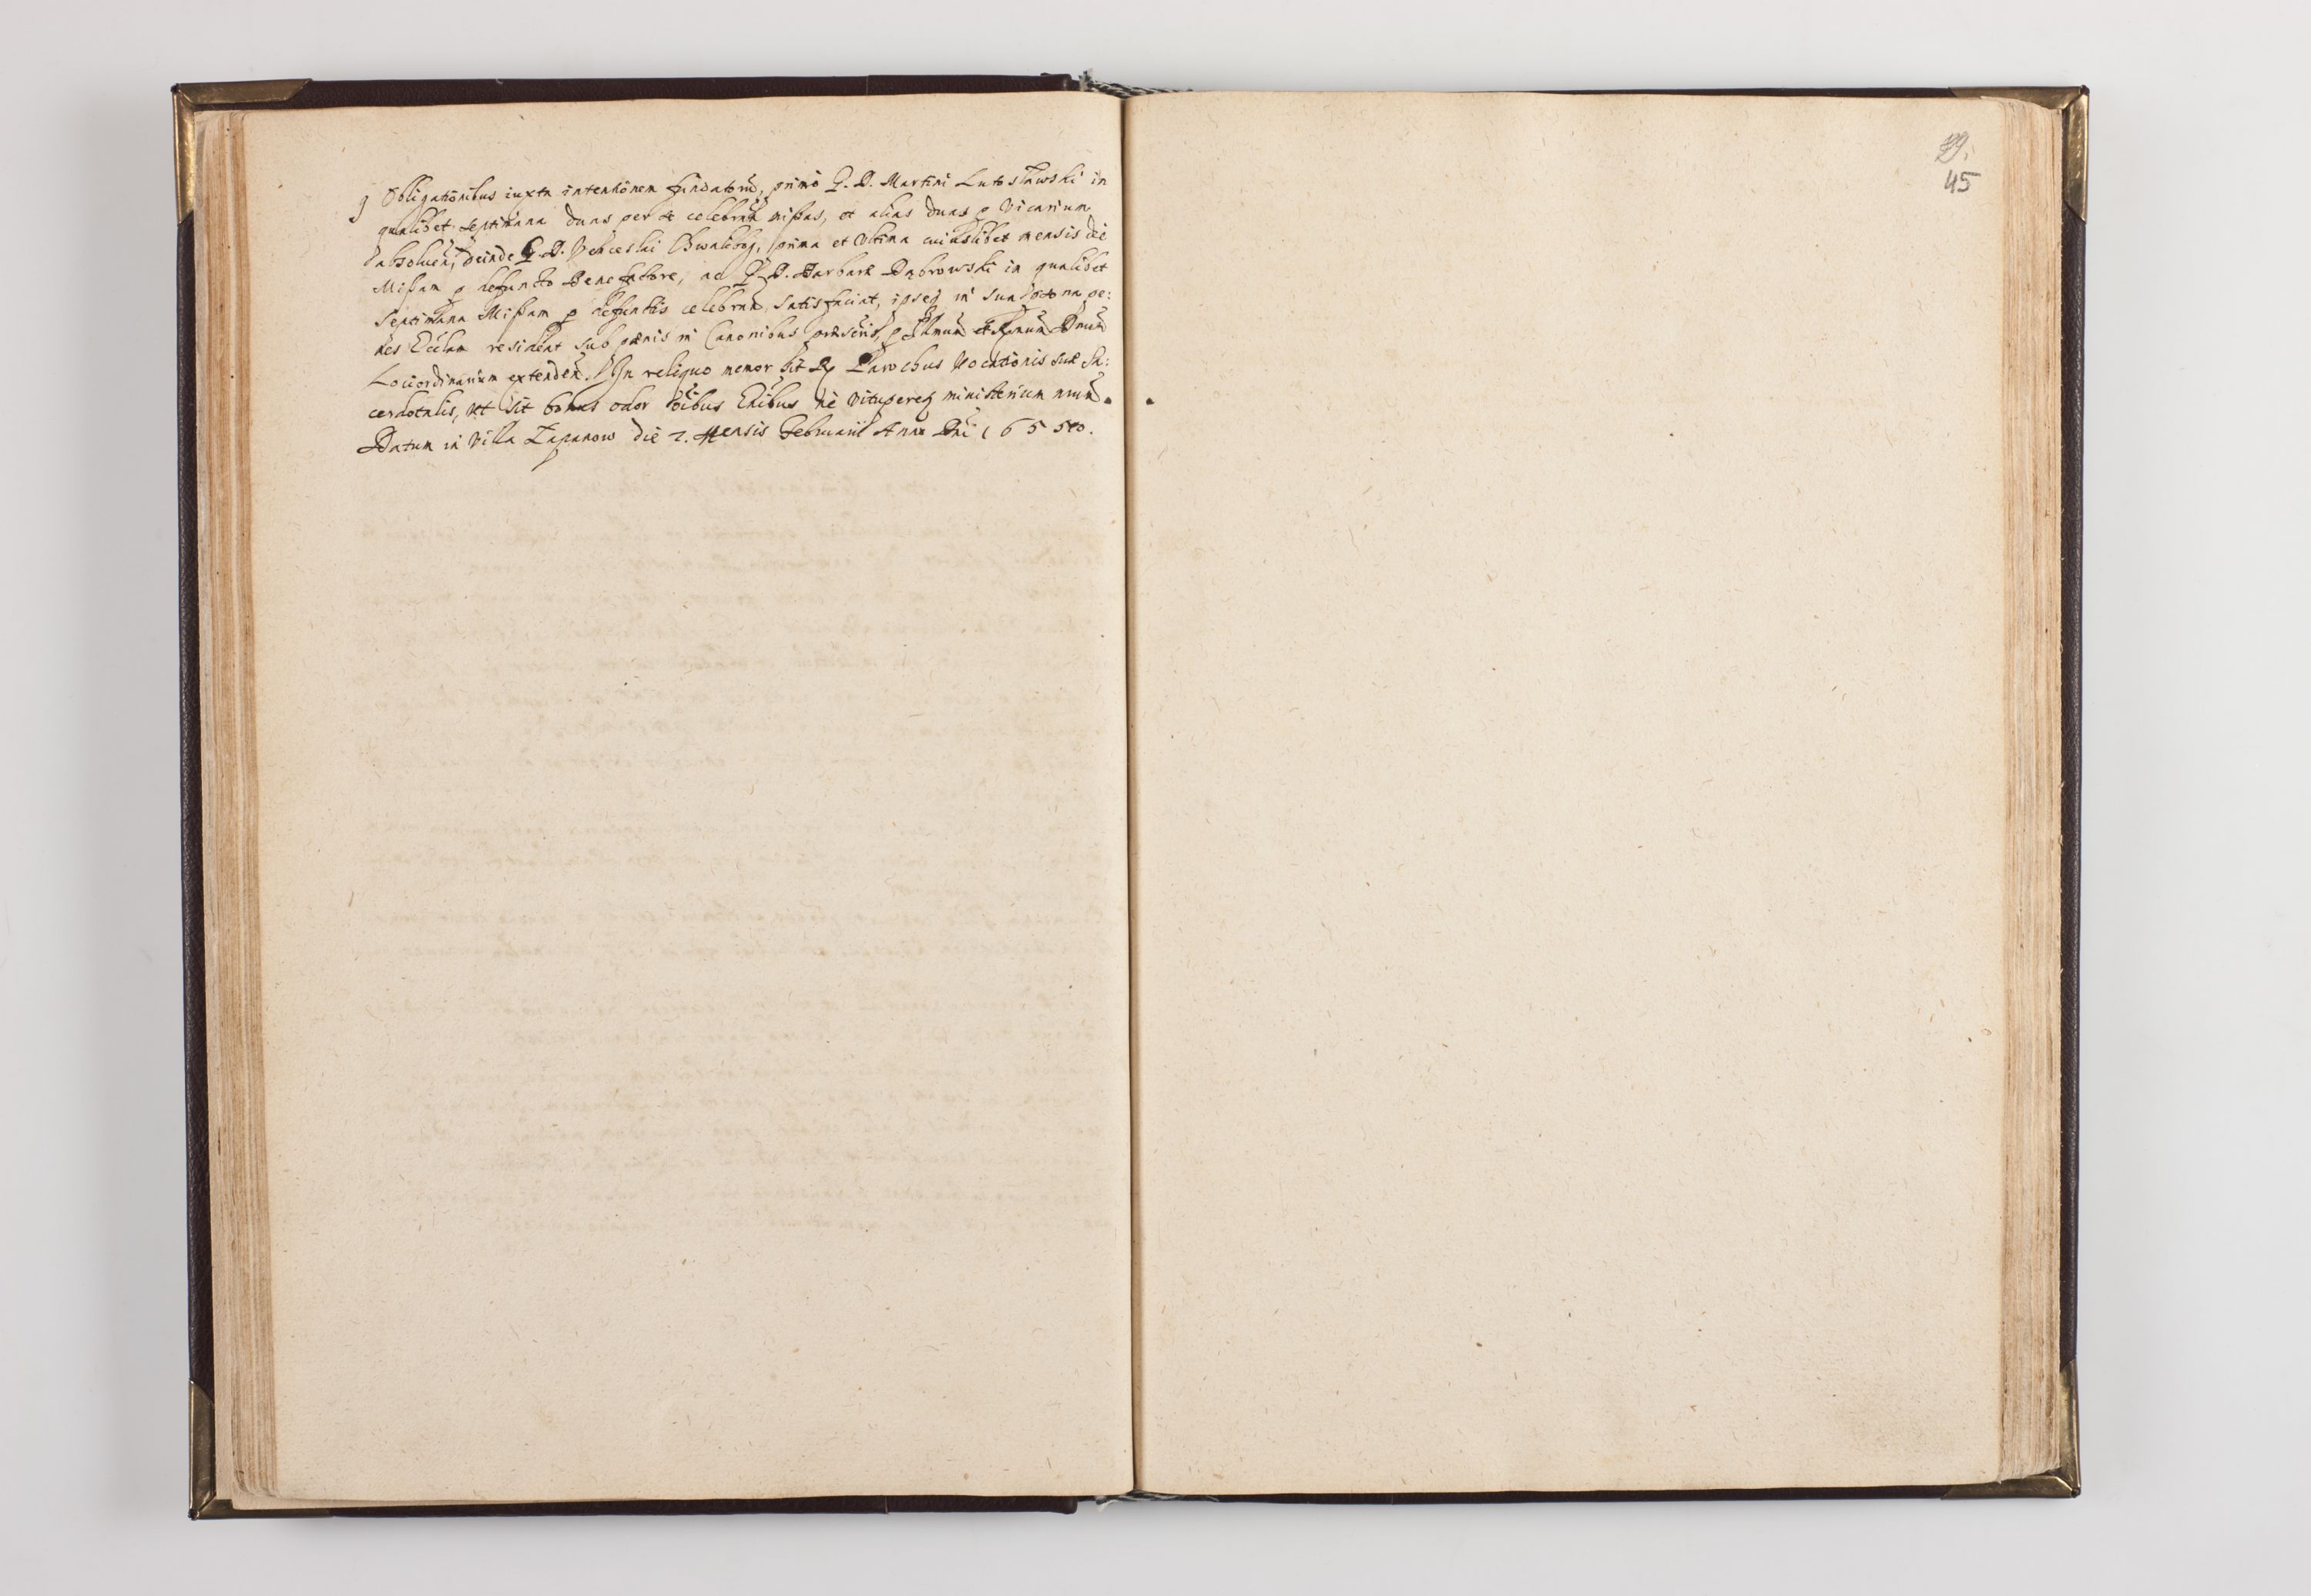 9 Obligationibus iuxta intentionem fundatorũ, primo G. D. Martini Lutosławski in
qualibet septimana duas per se celebrãn mißas, et alias duas p Vicarium
absoluen, deinde G. D. Chwalibog, prima et Vltima cuiuslibet mensis die
Mißam p defuncto Benefactore, ac G. D. Barbaræ Dąbrowski in qualibet
Septimana Mißam p defunctis celebran, satisfaciat, ipseq in sua psona pe:
nes Ecclam resideat sub pænis in Canonibus præscris, p Illmum et Rmum Dnum
Lociordinarium extenden. In reliquo memor sit Parochus Vocationis suæ Sa:
cerdotalis, vt sit bonus odor oibus ne vitupereq ministerium nrum.
Datum in Villa Łapanow die 2. Mensis Februarii Anno Dni 1655to.
29.
45